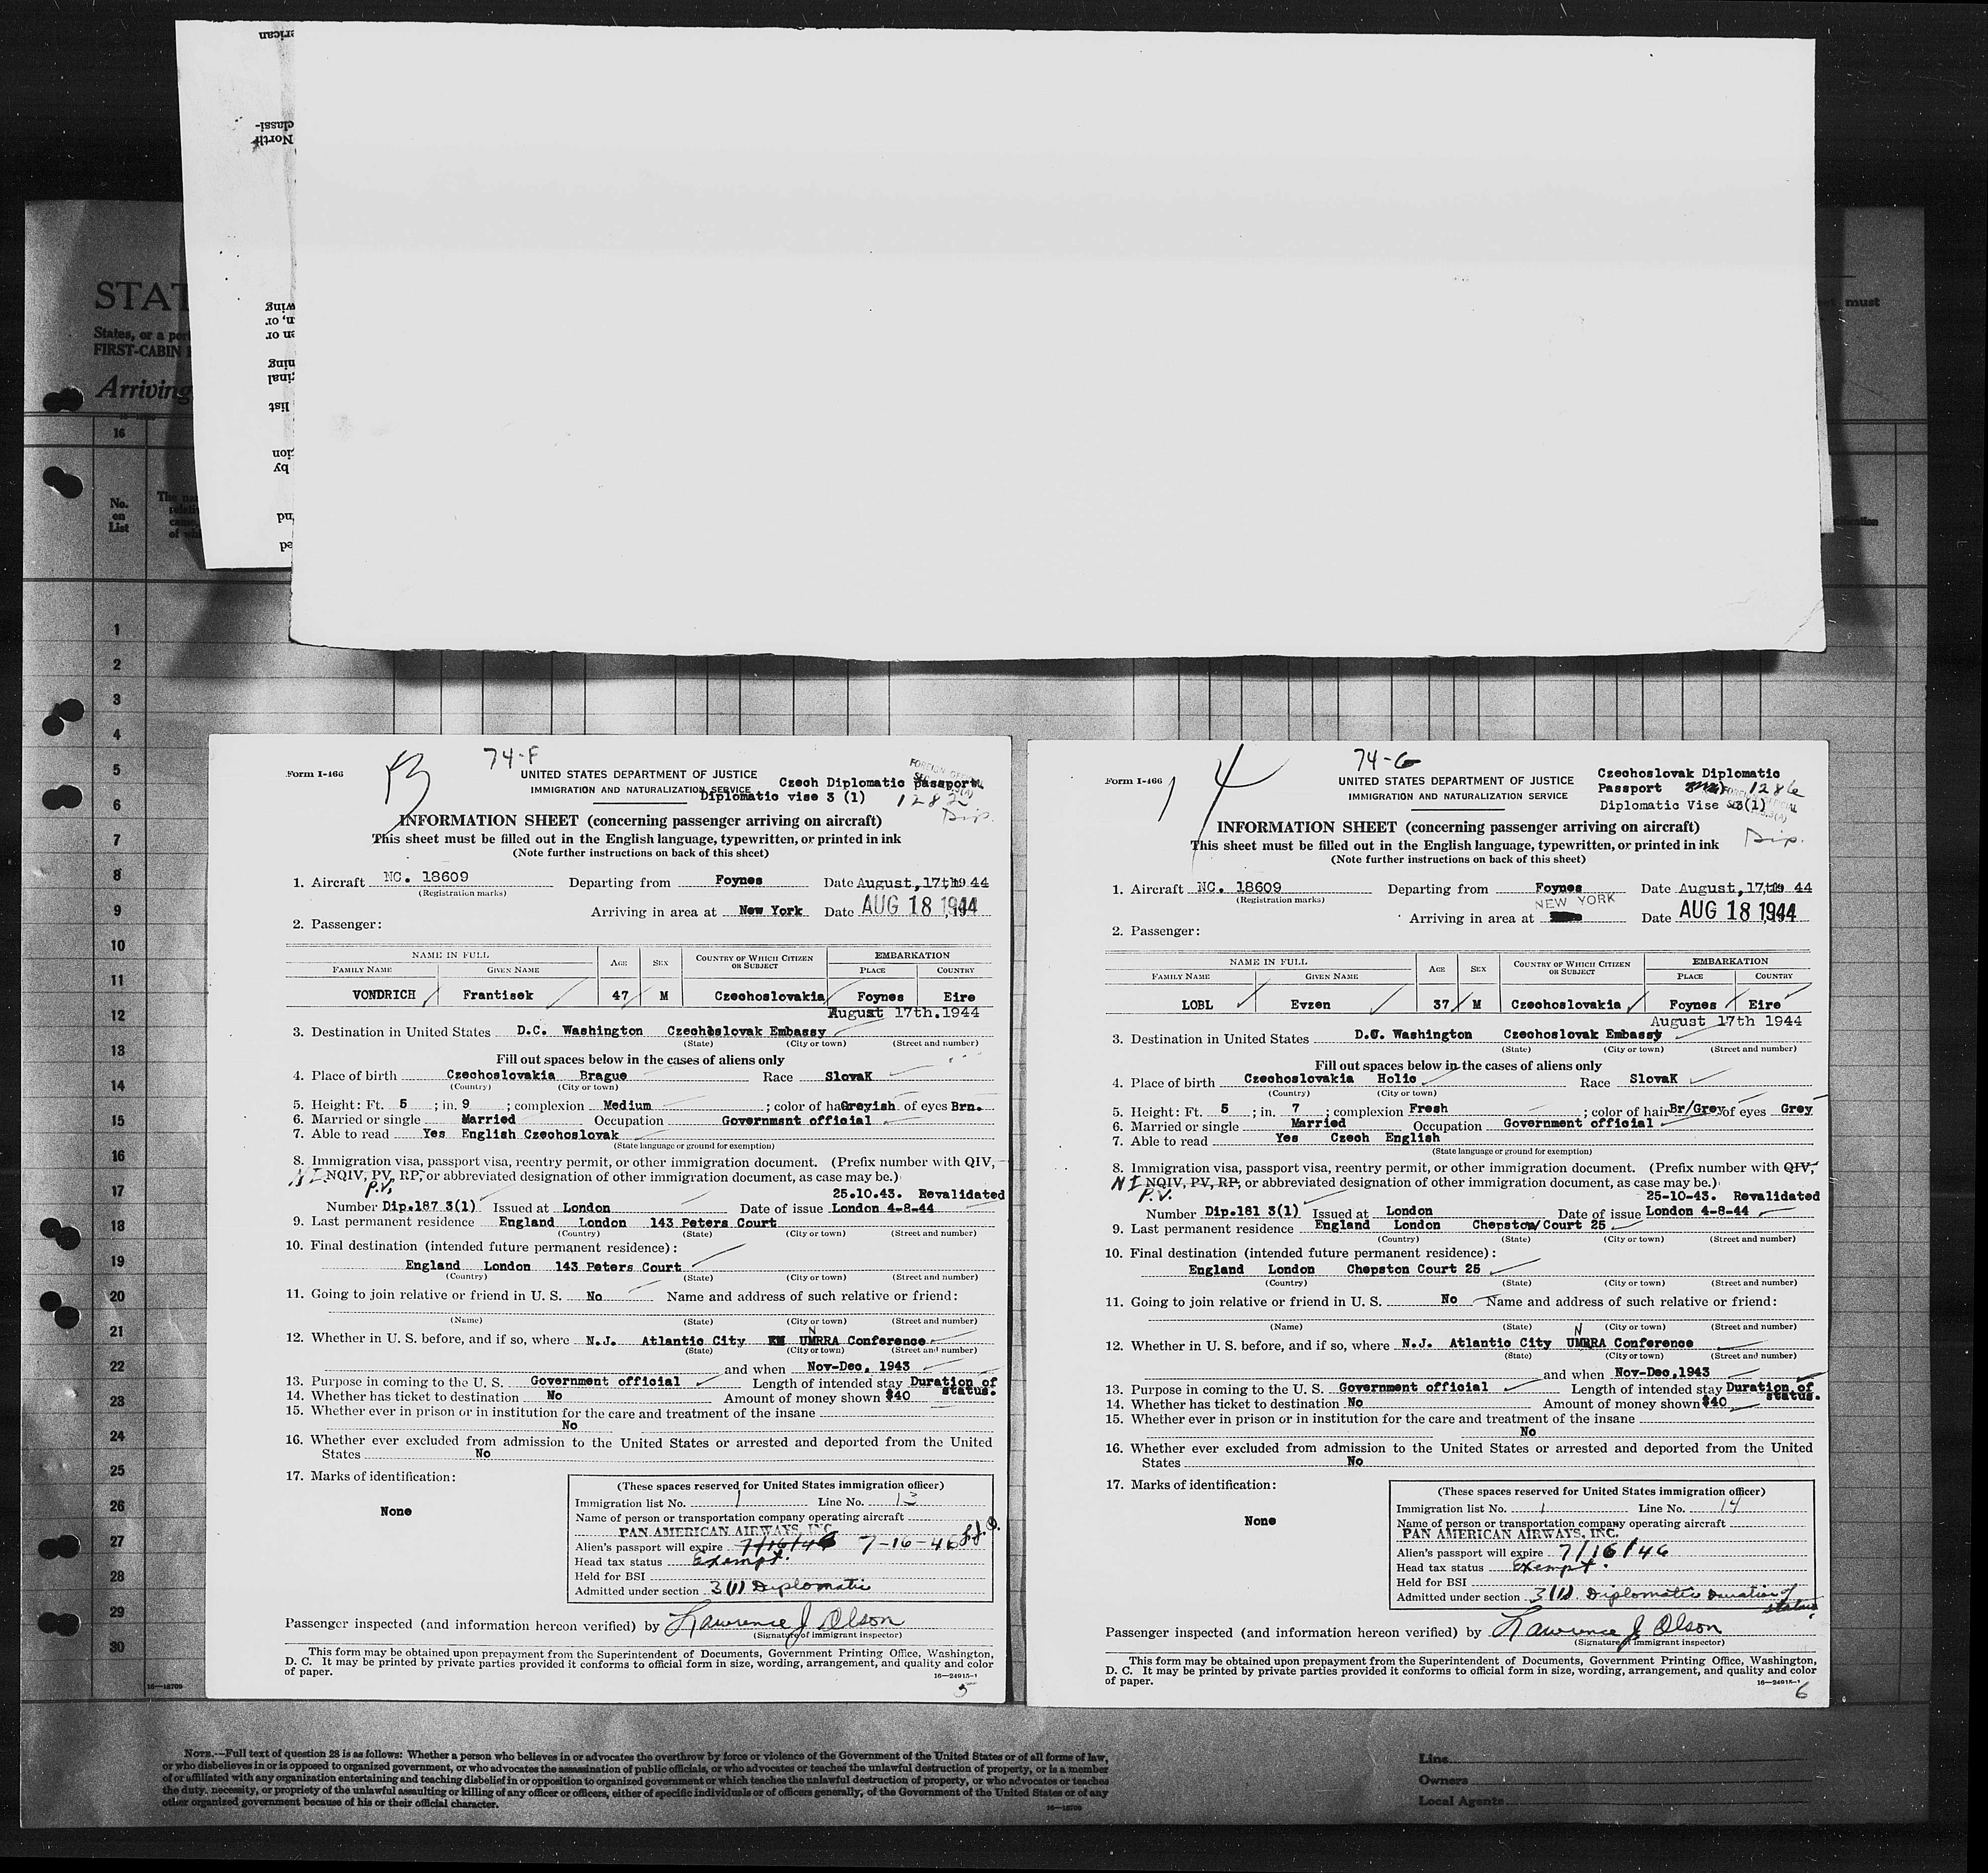 STAT
States, or a por
FIRST-CABIN
Arriving
must
16
No.
on
List
1
2
3
4
5
6
7
8
9
10
11
12
13
14
15
16
17
18
19
20
21
22
23
24
25
26
27
28
29
30
16—18709
13
74-F
Form I-466
UNITED STATES DEPARTMENT OF JUSTICE
IMMIGRATION AND NATURALIZATION SERVICE
Czech Diplomatic passport
Diplomatic vise 3 (1)
Dip.
INFORMATION SHEET (concerning passenger arriving on aircraft)
This sheet must be filled out in the English language, typewritten, or printed in ink
(Note further instructions on back of this sheet)
1. Aircraft NC. 18609 Departing from Foynes Date August, 17th 19 44
(Registration marks)
Arriving in area at New York Date AUG 18 1944
2. Passenger:
NAME IN FULL AGE SEX COUNTRY OF WHICH CITIZEN OR SUBJECT EMBARKATION
FAMILY NAME GIVEN NAME PLACE COUNTRY
VONDRICH Frantisek 47 M Czechoslovakia Foynes Eire
August 17th.1944
3. Destination in United States D.C. Washington Czechoslovak Embassy
(State) (City or town) (Street and number)
Fill out spaces below in the cases of aliens only
4. Place of birth Czechoslovakia Brague Race SlovaK
(Country) (City or town)
5. Height: Ft. 5 ; in. 9 ; complexion Medium ; color of ha Greyish of eyes Brn.
6. Married or single Married Occupation Government official
7. Able to read Yes English Czechoslovak
(State language or ground for exemption)
8. Immigration visa, passport visa, reentry permit, or other immigration document. (Prefix number with QIV,
NI NQIV, PV, RP, or abbreviated designation of other immigration document, as case may be.)
P.V.
25.10.43. Revalidated
Number Dip.187 3(1) Issued at London Date of issue London 4-8-44
9. Last permanent residence England London 143 Peters Court
(Country) (State) (City or town) (Street and number)
10. Final destination (intended future permanent residence):
England London 143 Peters Court
(Country) (State) (City or town) (Street and number)
11. Going to join relative or friend in U. S. No Name and address of such relative or friend:
(Name) (State) (City or town) (Street and number)
N
12. Whether in U. S. before, and if so, where N.J. Atlantic City UMRRA Conference
(State) (City or town) (Street and number)
and when Nov-Dec. 1943
13. Purpose in coming to the U. S. Government official Length of intended stay Duration of status.
14. Whether has ticket to destination No Amount of money shown $40
15. Whether ever in prison or in institution for the care and treatment of the insane
No
16. Whether ever excluded from admission to the United States or arrested and deported from the United
States No
17. Marks of identification:
None
(These spaces reserved for United States immigration officer)
Immigration list No. 1 Line No. 13
Name of person or transportation company operating aircraft
PAN AMERICAN AIRWAYS, INC.
Alien's passport will expire 7/16/46 7-16-46
Head tax status Exempt.
Held for BSI
Admitted under section 3(1) Diplomatic
Passenger inspected (and information hereon verified) by Lawrence J Olson
(Signature of immigrant inspector)
This form may be obtained upon prepayment from the Superintendent of Documents, Government Printing Office, Washington,
D. C. It may be printed by private parties provided it conforms to official form in size, wording, arrangement, and quality and color
of paper.
16—24915-1
5
14
74-G
Form I-466
UNITED STATES DEPARTMENT OF JUSTICE
IMMIGRATION AND NATURALIZATION SERVICE
Czechoslovak Diplomatic
Passport 1286
Diplomatic Vise 3(1)
Dip.
INFORMATION SHEET (concerning passenger arriving on aircraft)
This sheet must be filled out in the English language, typewritten, or printed in ink
(Note further instructions on back of this sheet)
1. Aircraft NC. 18609 Departing from Foynes Date August, 17th 19 44
(Registration marks)
NEW YORK
Arriving in area at Date AUG 18 1944
2. Passenger:
NAME IN FULL AGE SEX COUNTRY OF WHICH CITIZEN OR SUBJECT EMBARKATION
FAMILY NAME GIVEN NAME PLACE COUNTRY
LOBL Evzen 37 M Czechoslovakia Foynes Eire
August 17th 1944
3. Destination in United States D.C. Washington Czechoslovak Embassy
(State) (City or town) (Street and number)
Fill out spaces below in the cases of aliens only
4. Place of birth Czechoslovakia Holic Race SlovaK
(Country) (City or town)
5. Height: Ft. 5 ; in. 7 ; complexion Fresh ; color of hair Br/Grey of eyes Grey
6. Married or single Married Occupation Government official
7. Able to read Yes Czech English
(State language or ground for exemption)
8. Immigration visa, passport visa, reentry permit, or other immigration document. (Prefix number with QIV,
NI NQIV, PV, RP, or abbreviated designation of other immigration document, as case may be.)
P.V.
25-10-43. Revalidated
Number Dip.181 3(1) Issued at London Date of issue London 4-8-44
9. Last permanent residence England London Chepstow Court 25
(Country) (State) (City or town) (Street and number)
10. Final destination (intended future permanent residence):
England London Chepston Court 25
(Country) (State) (City or town) (Street and number)
11. Going to join relative or friend in U. S. No Name and address of such relative or friend:
(Name) (State) (City or town) (Street and number)
N
12. Whether in U. S. before, and if so, where N.J. Atlantic City UMRRA Conference
(State) (City or town) (Street and number)
and when Nov-Dec.1943
13. Purpose in coming to the U. S. Government official Length of intended stay Duration of status.
14. Whether has ticket to destination No Amount of money shown $40
15. Whether ever in prison or in institution for the care and treatment of the insane
No
16. Whether ever excluded from admission to the United States or arrested and deported from the United
States No
17. Marks of identification:
None
(These spaces reserved for United States immigration officer)
Immigration list No. 1 Line No. 14
Name of person or transportation company operating aircraft
PAN AMERICAN AIRWAYS, INC.
Alien's passport will expire 7/16/46
Head tax status Exempt.
Held for BSI
Admitted under section 3(1) Diplomatic Duration of status
Passenger inspected (and information hereon verified) by Lawrence J Olson
(Signature of immigrant inspector)
This form may be obtained upon prepayment from the Superintendent of Documents, Government Printing Office, Washington,
D. C. It may be printed by private parties provided it conforms to official form in size, wording, arrangement, and quality and color
of paper.
16—24915-1
6
NOTE.—Full text of question 28 is as follows: Whether a person who believes in or advocates the overthrow by force or violence of the Government of the United States or of all forms of law,
or who disbelieves in or is opposed to organized government, or who advocates the assassination of public officials, or who advocates or teaches the unlawful destruction of property, or is a member
of or affiliated with any organization entertaining and teaching disbelief in or opposition to organized government or which teaches the unlawful destruction of property, or who advocates or teaches
the duty, necessity, or propriety of the unlawful assaulting or killing of any officer or officers, either of specific individuals or of officers generally, of the Government of the United States or of any
other organized government because of his or their official character.
16—18709
Line
Owners
Local Agents